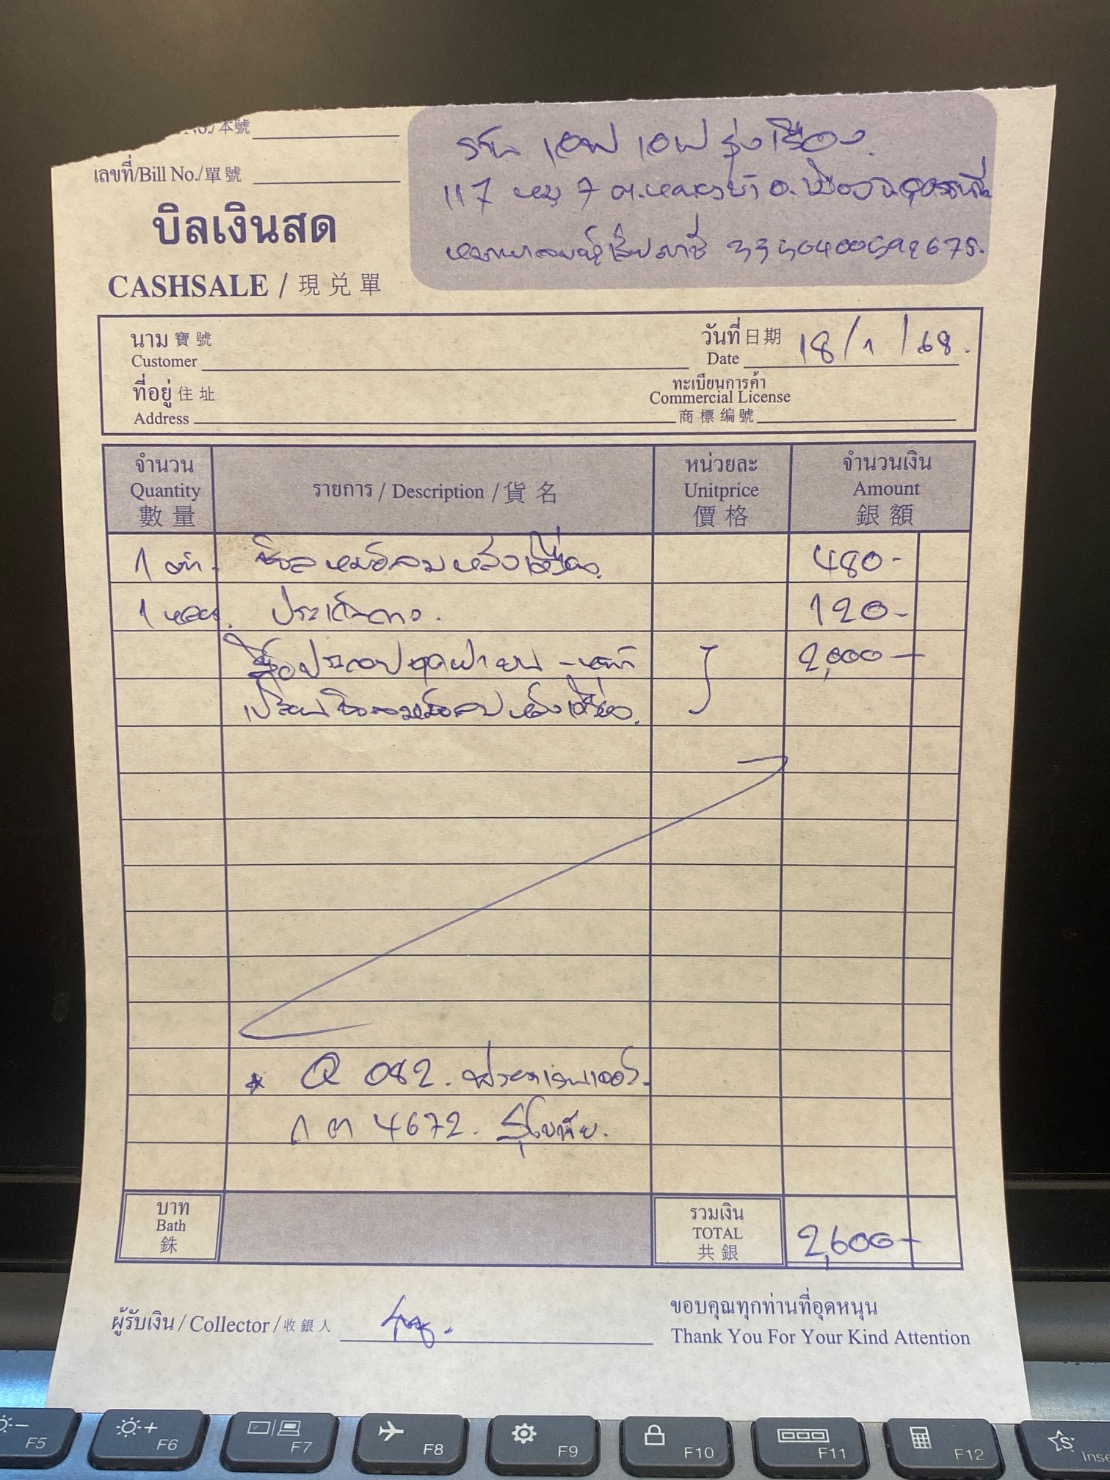 No./本號
เลขที่/Bill No./單號
บิลเงินสด
CASHSALE / 現兑單
เอฟ เอฟ รุ่งเรือง.
117 หมู่ 7 ต. อ. เมือง
3350400592675.
นาม 寶號
Customer
วันที่ 日期
Date 18/1/68.
ที่อยู่ 住址
Address
ทะเบียนการค้า
Commercial License
商標编號
จำนวน
Quantity
數量
รายการ / Description / 貨名
หน่วยละ
Unitprice
價格
จำนวนเงิน
Amount
銀額
1 ตัว. ซีลหม้อลมหลังเดี่ยว. 480-
1 หลอด. ประเก็นกาว. 120-
2,000-
เปลี่ยนซีลหม้อลมหลังเดี่ยว.
* Q 082.
4672. สุโขทัย.
บาท
Bath
銖
รวมเงิน
TOTAL
共銀
2,600-
ผู้รับเงิน / Collector / 收銀人
ขอบคุณทุกท่านที่อุดหนุน
Thank You For Your Kind Attention
F5
F6
F7
F8
F9
F10
F11
F12
Inse